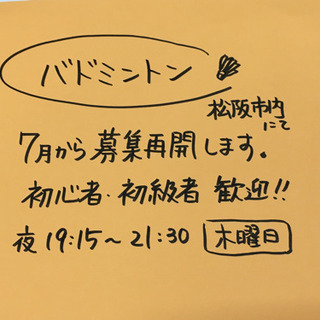 バドミントン
松阪市内
にて
7月から募集再開します。
初心者・初級者 歓迎!!
夜 19:15～21:30 木曜日